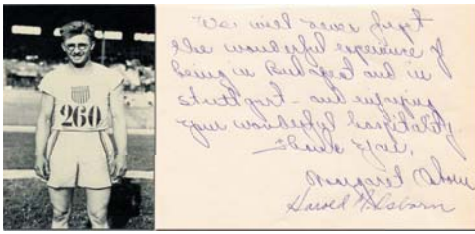 260
We will never forget
the wonderful experience of
being in Budapest and in
Stuttgart - and enjoying
your wonderful hospitality.
Thank you,
Margaret Osborn
Harold M. Osborn